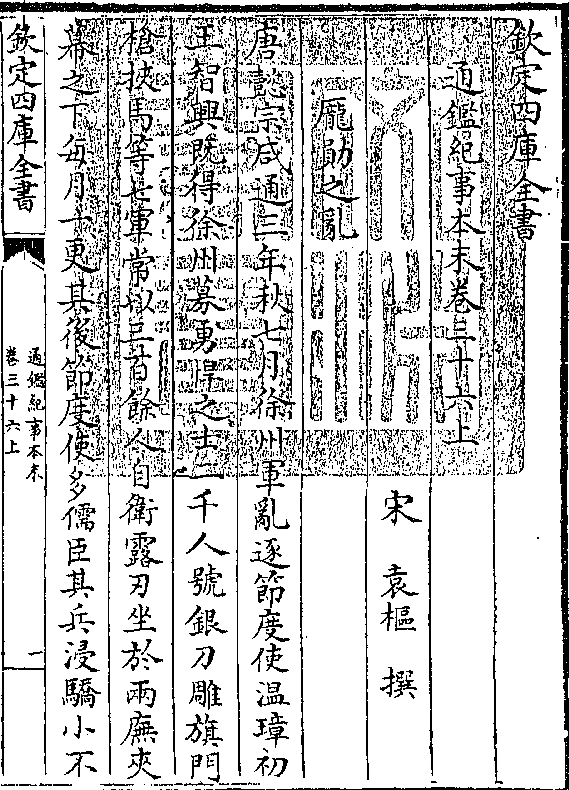 欽定四庫全書
通鑑紀事本末卷三十六上
宋 袁樞 撰
龐勛之亂
唐懿宗咸通三年秋七月徐州軍亂逐節度使温璋初
王智興既得徐州募勇悍之士二千人號銀刀雕旗門
槍挾馬等七軍常以三百餘人自衛露刃坐於兩廡夾
幕之下每月一更其後節度使多儒臣其兵浸驕小不
欽定四庫全書
通鑑紀事本末
卷三十六上
一